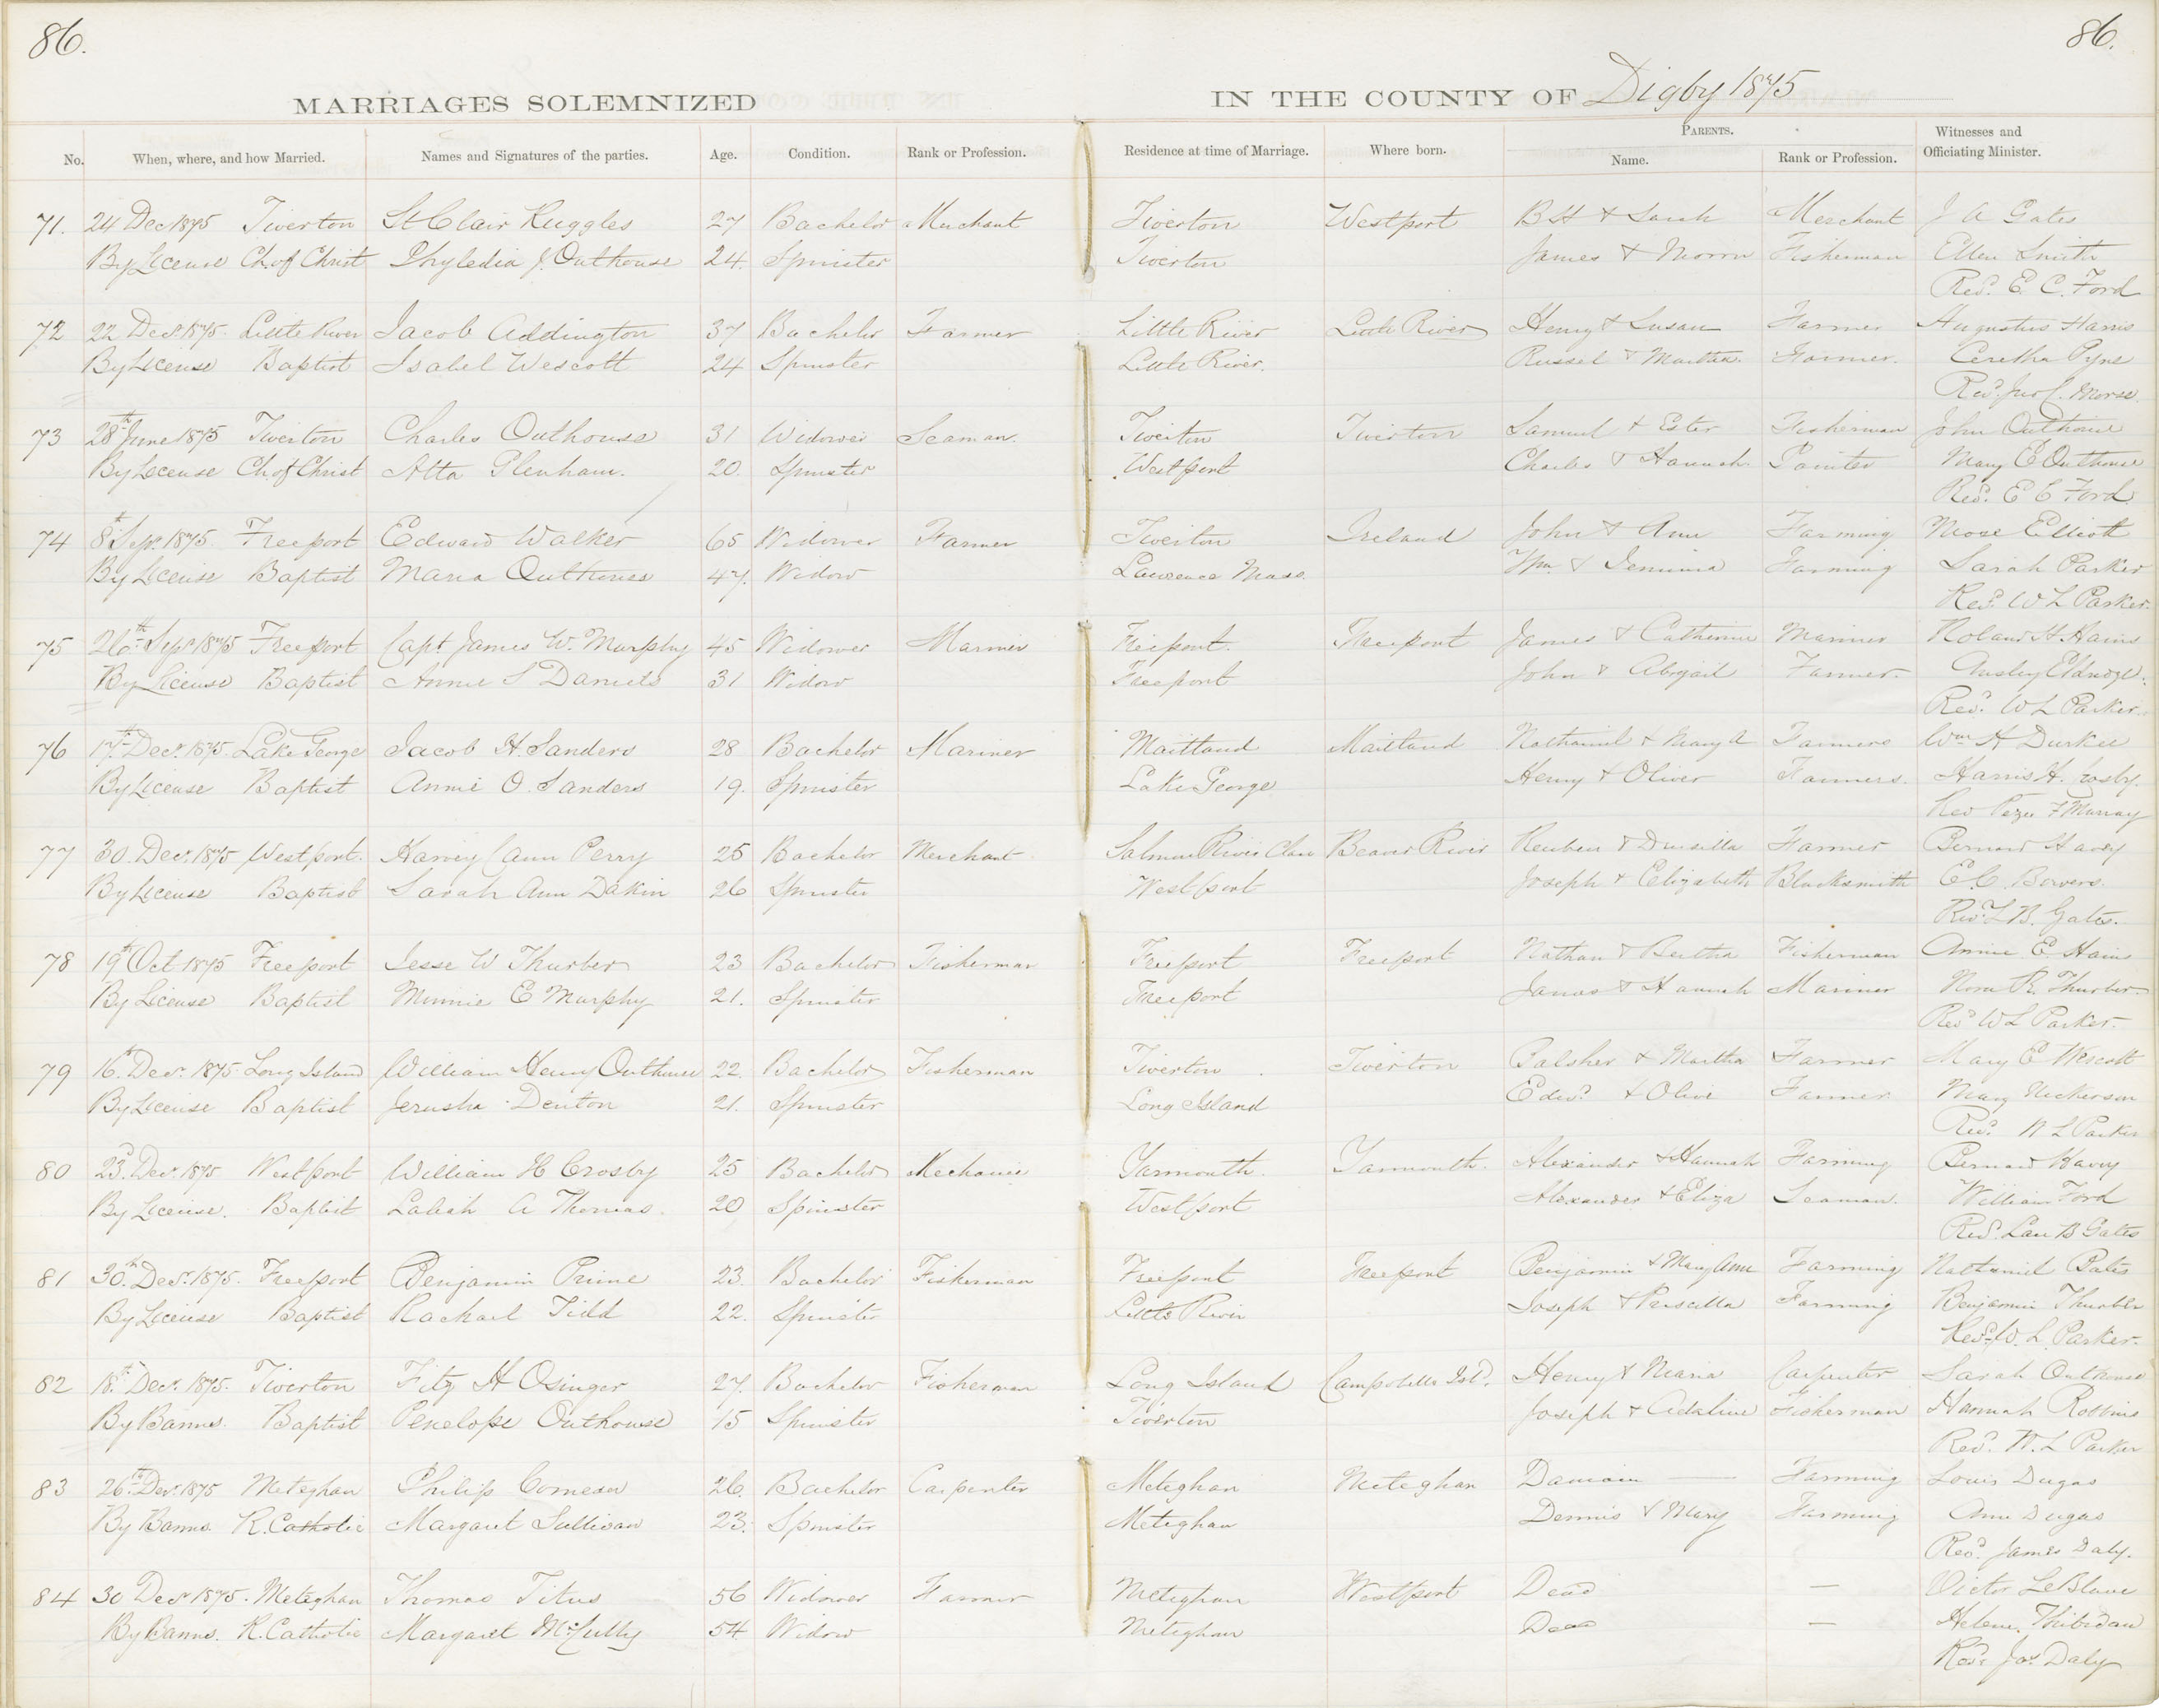 86. 86.
MARRIAGES SOLEMNIZED IN THE COUNTY OF Digby 1875
No. When, where, and how Married. Names and Signatures of the parties. Age. Condition. Rank or Profession. Residence at time of Marriage. Where born. PARENTS. Name. Rank or Profession. Witnesses and Officiating Minister.
71. 24 Dec 1875 Tiverton St Clair Ruggles 27 Bachelor Merchant Tiverton Westport B H & Sarah Merchant J A Gates
By License Ch. of Christ Phyledia J. Outhouse 24. Spinster Tiverton James & Fisherman Ellen Smith
Revd. E. C. Ford
72 22 Decr. 1875. Little River Jacob Addington 37 Bachelor Farmer Little River Little River Henry & Susan Farmer Augustus Harris
By License Baptist Isabel Wescott 24 Spinster Little River. Russel & Martha. Farmer. Ceretha Pyne
Revd. Jno C. Morse
73 28th June 1875 Tiverton Charles Outhouse 31 Widower Seaman. Tiverton Tiverton Samuel & Ester Fisherman John Outhouse
By License Ch. of Christ Alta Plenham. 20. Spinster Westport Charles & Hannah. Painter Mary E Outhouse
Revd. E C Ford
74 8th Sepr. 1875. Freeport Edward Walker 65 Widower Farmer Tiverton Ireland John & Ann Farming Mose Elliott
By License Baptist Maria Outhouse 47. Widow Lawrence Mass. Wm. & Jemima Farming Sarah Parker
Revd. W L Parker.
75 26th Sepr 1875 Freeport Capt James W. Murphy 45 Widower Mariner Freeport. Freeport James & Catherine Mariner Roland H. Hains
By License Baptist Annie S Daniels 31 Widow Freeport John & Abigail Farmer. Ansley Eldridge.
Revd. W L Parker.
76 17th Decr. 1875. Lake George Jacob H. Sanders 28 Bachelor Mariner Maitland Maitland Nathaniel & Mary A Farmers Wm H Durkee
By License Baptist Annie O. Sanders 19. Spinster Lake George Henry & Oliver Farmers. Harris H. Crosby.
Rev F Murray
77 30. Decr. 1875 Westport. Harvey Cann Perry 25 Bachelor Merchant Salmon River Clare Beaver River Reuben & Drusilla Farmer Bernard Havey
By License Baptist Sarah Ann Dakin 26 Spinster Westport Joseph & Elizabeth Blacksmith E. C. Bowers.
Revd. L B. Gates.
78 19th Oct 1875 Freeport Jesse W Thurber 23 Bachelor Fisherman Freeport Freeport Nathan & Bertha Fisherman Annie E. Hains
By License Baptist Minnie E Murphy 21. Spinster Freeport James & Hannah Mariner Nora Thurber
Revd W L Parker.
79 16th Decr. 1875 Long Island William Henry Outhouse 22. Bachelor Fisherman Tiverton Tiverton Balsher & Martha Farmer Mary E Wescott
By License Baptist Jerusha Denton 21. Spinster Long Island Edwd. & Olive Farmer Mary Nickerson
Revd. W L Parker
80 23d. Decr. 1875 Westport William H Crosby 25 Bachelor Mechanic Yarmouth. Yarmouth. Alexander & Hannah Farming Bernard Havey
By License. Baptist Laliah A Thomas. 20 Spinster Westport Alexander & Eliza Seaman. William Ford
Revd. Lau B Gates
81 30th Decr. 1875. Freeport Benjamin Prime 23. Bachelor Fisherman Freeport Freeport Benjamin & Mary Ann Farming Nathaniel Bates
By License Baptist Rachael Tidd 22. Spinster Little River Joseph & Priscilla Farming Benjamin Thurber
Revd. W. L. Parker.
82 18th Decr. 1875. Tiverton Fitz H Osinger 27. Bachelor Fisherman Long Island Campobello Isld. Henry & Maria Carpenter Sarah Outhouse
By Banns. Baptist Penelope Outhouse 15 Spinster Tiverton Joseph & Adaline Fisherman Hannah Robbins
Revd. W. L Parker
83 26th Decr. 1875 Meteghan Philip Comeau 26. Bachelor Carpenter Meteghan Meteghan Damain — Farming Louis Dugas
By Banns. R. Catholic Margaret Sullivan 23. Spinster Meteghan Dennis & Mary Farming Ann Dugas
Revd. James Daly.
84 30 Decr 1875. Meteghan Thomas Titus 56 Widower Farmer Meteghan Westport Dead — Victor LeBlanc
By Banns. R. Catholic Margaret McCully 54 Widow Meteghan Dead — Helene Thibidau
Revd. Jas. Daly